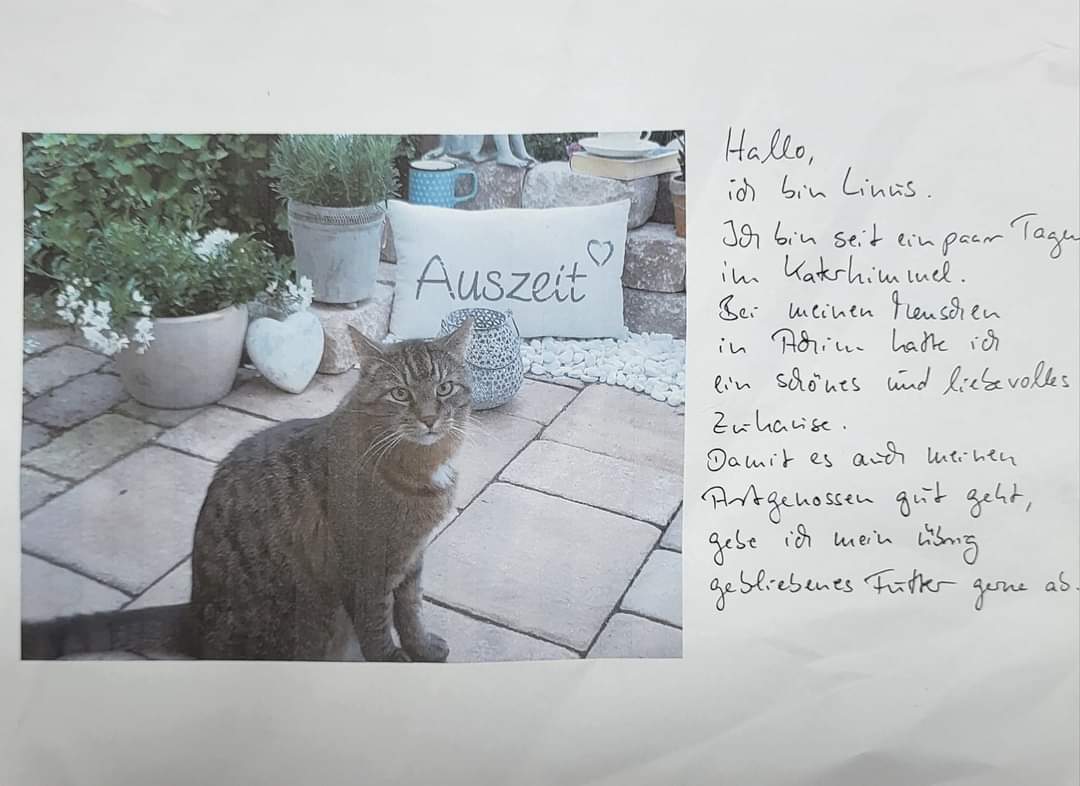 Auszeit
Hallo,
ich bin Linus.
Ich bin seit ein paar Tagen
im Katerhimmel.
Bei meinen Menschen
in Achim hatte ich
ein schönes und liebevolles
Zuhause.
Damit es auch meinen
Artgenossen gut geht,
gebe ich mein übrig
gebliebenes Futter gerne ab.